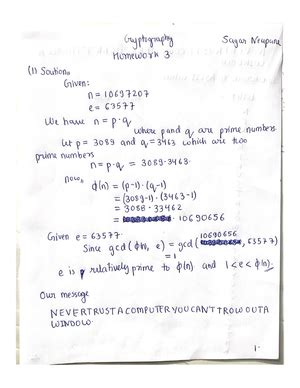 Cryptography Sagar Neupane
Homework 3
(1) Soution.
Given:
n = 10697207
e = 63577
We have n = p·q
where p and q are prime numbers
Let p = 3089 and q = 3463 which are two
prime numbers
n = p·q = 3089·3463.
now, ϕ(n) = (p-1)·(q-1)
= (3089-1)·(3463-1)
= 3088·33462
= 10690656
Given e = 63577.
Since gcd(ϕ(n), e) = gcd(10690656, 63577)
= 1
e is relatively prime to ϕ(n) and 1<e<ϕ(n).
Our message
NEVERTRUSTACOMPUTERYOUCAN'TTROWOUTA
WINDOW.
1.